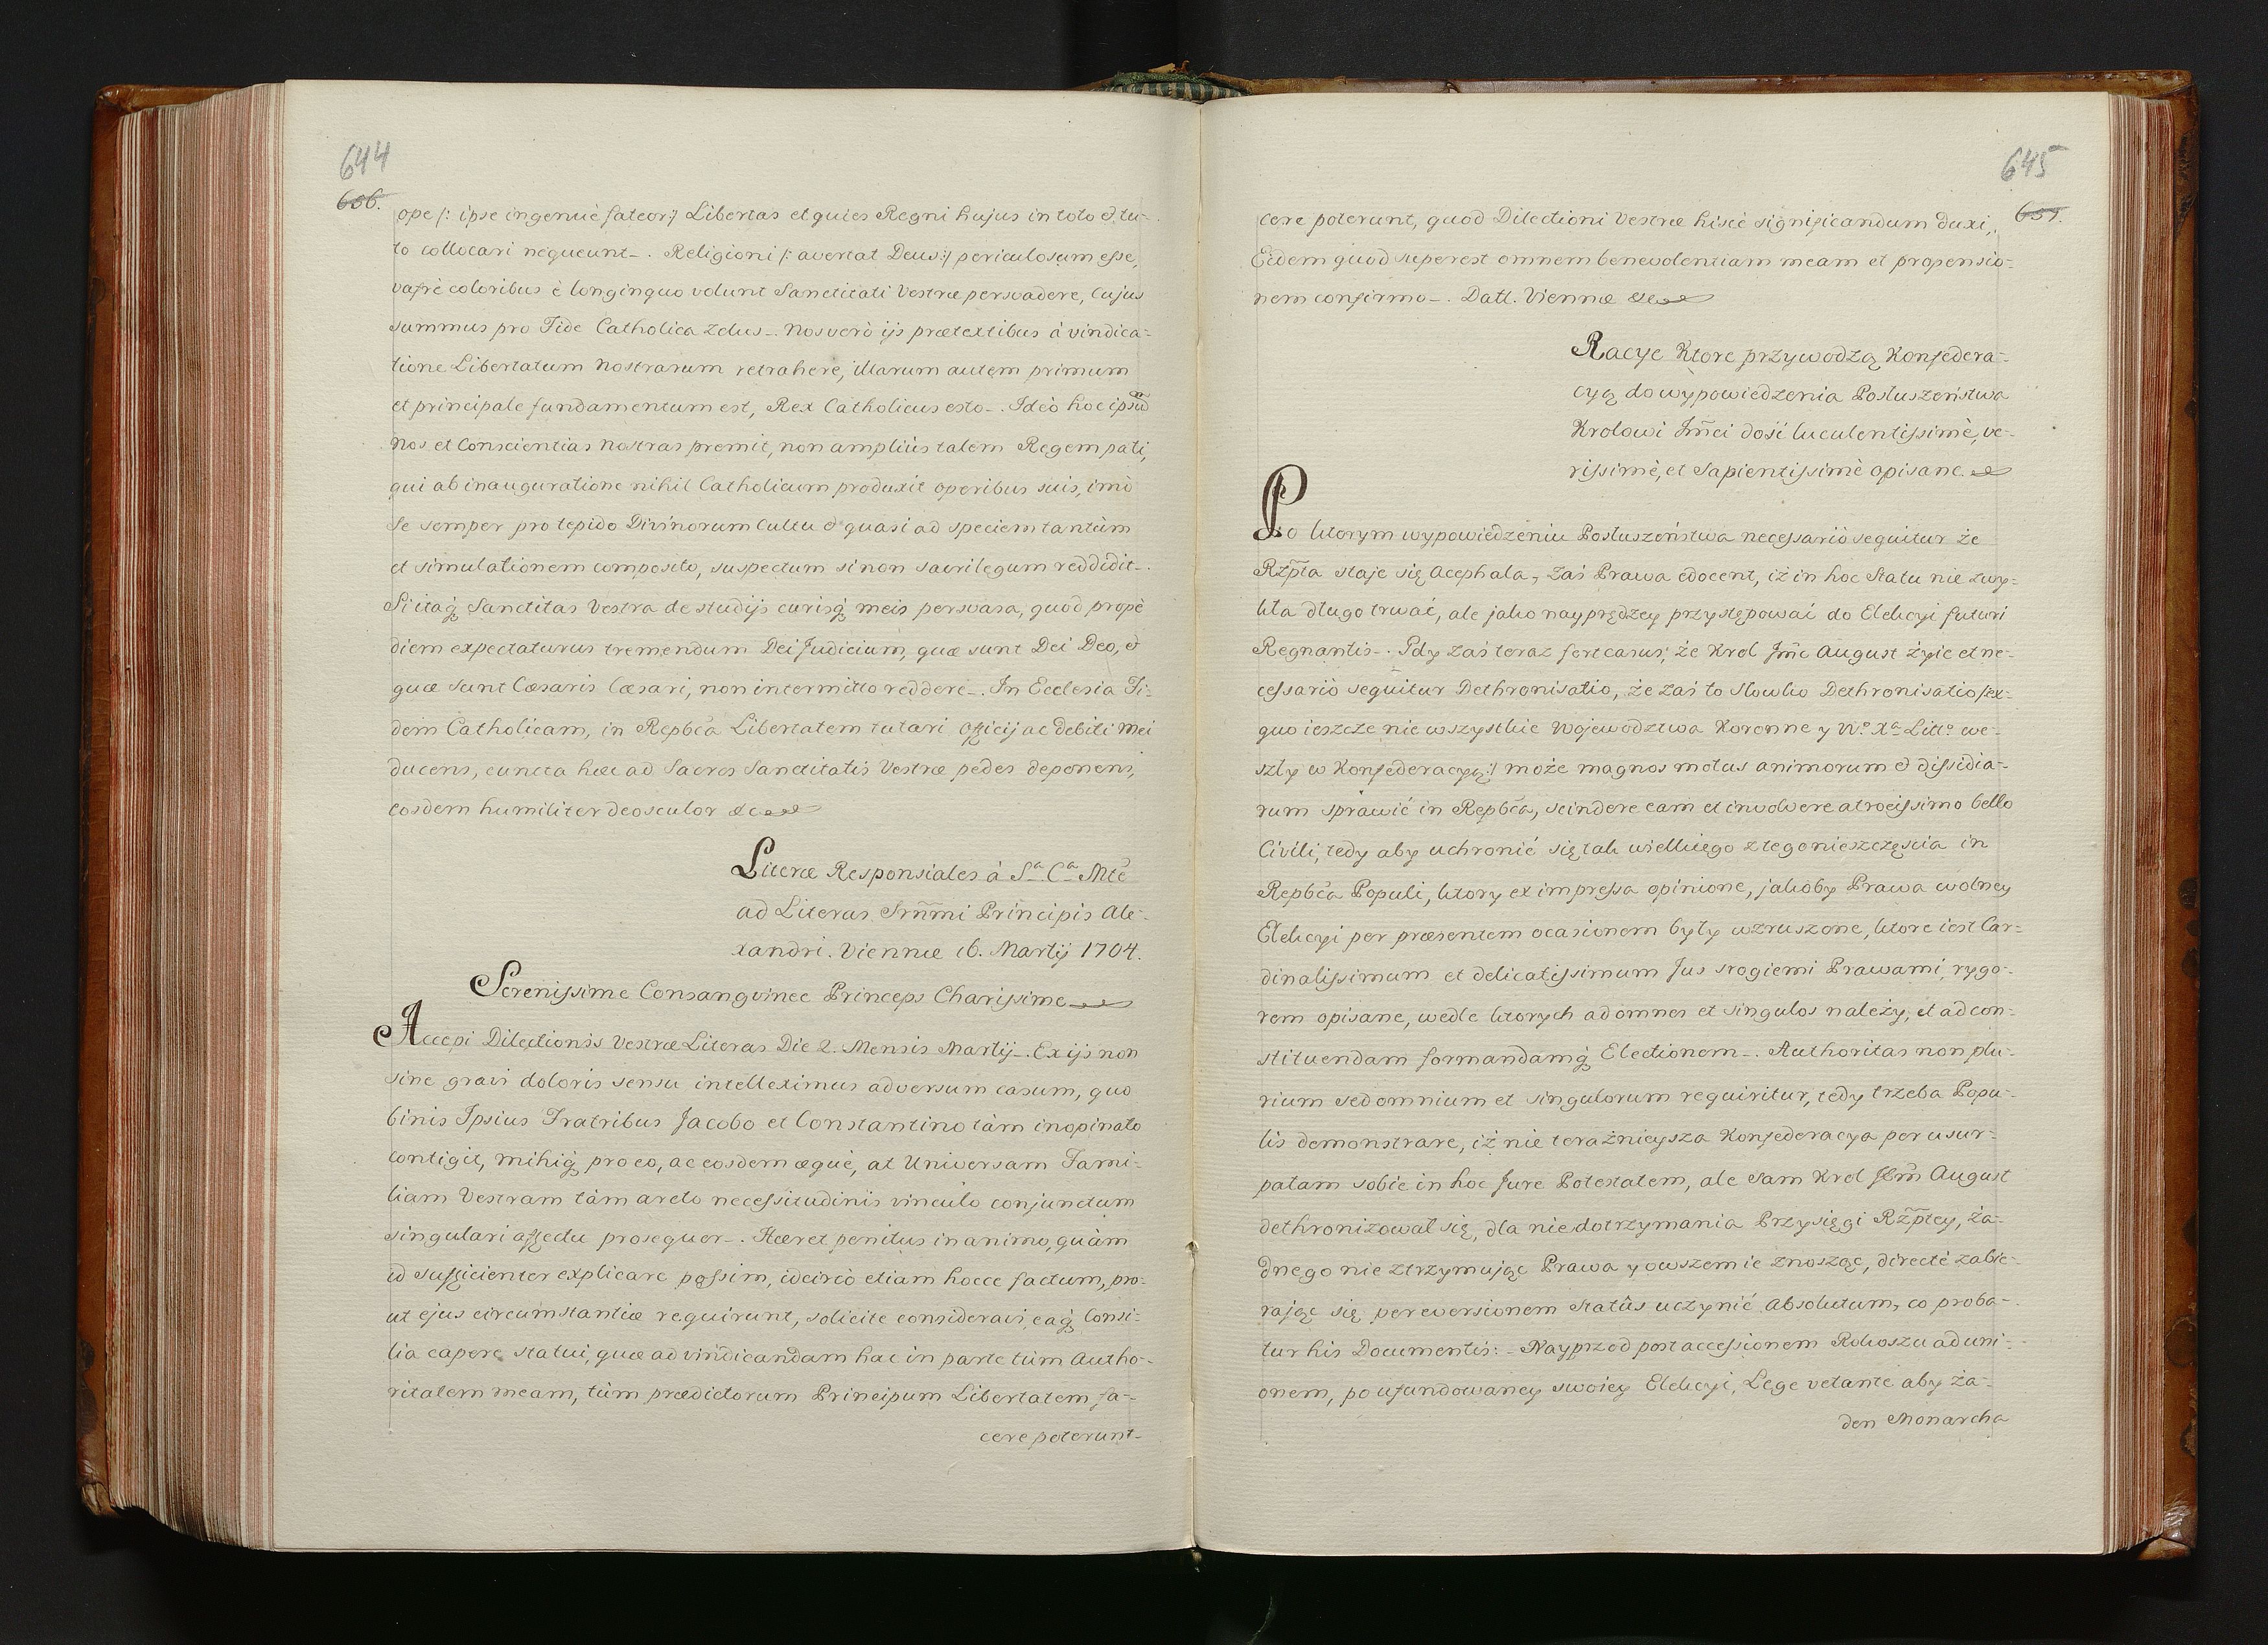 644
656.
ope /: ipse ingenuè fateor :/ Libertas et quies Regni hujus in toto & tu-
to collocari nequeunt-. Religioni /: avertat Deus :/ periculosum esse,
vafrè coloribus è longinquo volunt Sanctitati Vestræ persvadere, Cujus
summus pro Fide Catholica zelus-. Nos verò ijs prætextibus à vindica=
tione Libertatum Nostrarum retrahere, illarum autem primum
et principale fundamentum est, Rex Catholicus esto-. Ideò hoc ipsũ
Nos et Conscientias Nostras premit, non ampliùs talem Regem pati,
qui ab inauguratione nihil Catholicum produxit operibus suis, imò
Se semper pro tepido Divinorum Cultu & quasi ad speciem tantùm
et simulationem composito, suspectum si non sacrilegum reddidit-.
Si itaq́ Sanctitas Vestra de studijs curisq́ meis persvasa, quod propè
diem expectaturus tremendum Dei Judicium, quæ sunt Dei Deo, &
quæ sunt Cæsaris Cæsari, non intermitto reddere-. In Ecclesia Fi=
dem Catholicam, in Repbca Libertatem tutari Officij ac debiti mei
ducens, cuncta hæc ad Sacros Sanctitatis Vestræ pedes deponens,
eosdem humiliter deosculor &c
Literæ Responsiales à Sa. Ca. Mte
ad Literas Srm̃mi Principis Ale-
xandri. Viennæ 16. Martij 1704.
Serenissime Consangvinee Princeps Charissime
Accepi Dilectionis Vestræ Literas Die 2. Mensis Martij-. Ex ijs non
sine gravi doloris sensu intelleximus adversum casum, quo
binis Ipsius Fratribus Jacobo et Constantino tàm inopinato
contigit, mihiq́ pro eo, ac eosdem æquè, at Universam Fami=
liam Vestram tàm arcto necessitudinis vinculo conjunctum
singulari affectu prosequor-. Hæret penitus in animo, quàm
id sufficienter explicare possim, idcircò etiam hocce factum, pro-
ut ejus circumstantiæ requirunt, solicite consideravi, eaq́ Consi=
lia capere statui, quæ ad vindicandam hac in parte tùm Autho-
ritatem meam, tùm prædictorum Principum Libertatem fa-
cere poterunt-
645
657.
cere poterunt, quod Dilectioni Vestræ hiscè significandum duxi,
Eidem quod superest omnem benevolentiam meam et propensio=
nem confirmo-. Datt. Viennæ &c
Racye Ktore przywodzą Konfedera=
cyą do wypowiedzenia Posłuszeństwa
Krolowi Jm̃ci dość luculentissimè, ve-
rissimè, et Sapientissimè opisane.
Po ktorym wypowiedzeniu Posłuszeństwa necessariò sequitur że
Rzp̃ta staje się Acephala, zaś Prawa edocent, iż in hoc Statu nie zwy=
kła długo trwać, ale jako nayprędzey przystępować do Elekcyi futuri
Regnantis-. Gdy zaś teraz fert casus, że Krol Jm̃c August żyie et ne-
cessariò sequitur Dethronisatio, że zaś to słowko Dethronisatio /: ex=
quo ieszcze nie wszystkie Wojewodztwa Koronne y Wo. Xa. Litto we-
szły w Konfederacyą :/ może magnos motus animorum & dissidia-
rum sprawić in Repbca, scindere eam et involvere atrocissimo bello
Civili, tedy aby uchronić się tak wielkiego z tego nieszczęścia in
Repbca Populi, ktory ex impressa opinione, jakoby Prawa wolney
Elekcyi per præsentem ocasionem były wzruszone, ktore iest Car=
dinalissimum et delicatissimum Jus srogiemi Prawami, rygo-
rem opisane, wedle ktorych ad omnes et singulos należy, et ad con=
stituendam formandamq́ Electionem-. Authoritas non plu-
rium sed omnium et singulorum requiritur, tedy trzeba Popu-
lis demonstrare, iż nie teraźnieysza Konfederacya per usur=
patam sobie in hoc Jure Potestatem, ale sam Krol Jem̃ August
dethronizował się, dla nie dotrzymania Przysięgi Rzp̃tey, ża-
dnego nie ztrzymując Prawa y owszem ie znosząc, directè zabie-
rając się, per eversionem Statûs uczynić Absolutum, co proba-
tur his Documentis: - Nayprzod post accessionem Rokoszu ad uni-
onem, po ufundowaney swoiey Elekcyi, Lege vetante aby ża-
den Monarcha